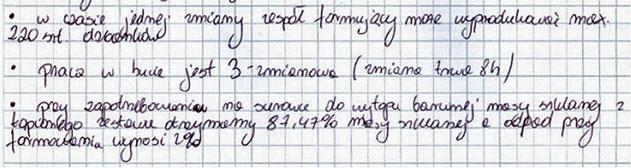 • w czasie jednej zmiany zespół formujący może wyprodukować max.
220 szt. dzbanków
• praca w hucie jest 3-zmianowa (zmiana trwa 8h)
• przy zapotrzebowaniu na surowce do wytopu barwnej masy szklanej z
topionego zestawu otrzymamy 87,47% masy szklanej a odpad przy
formowaniu wynosi 2%